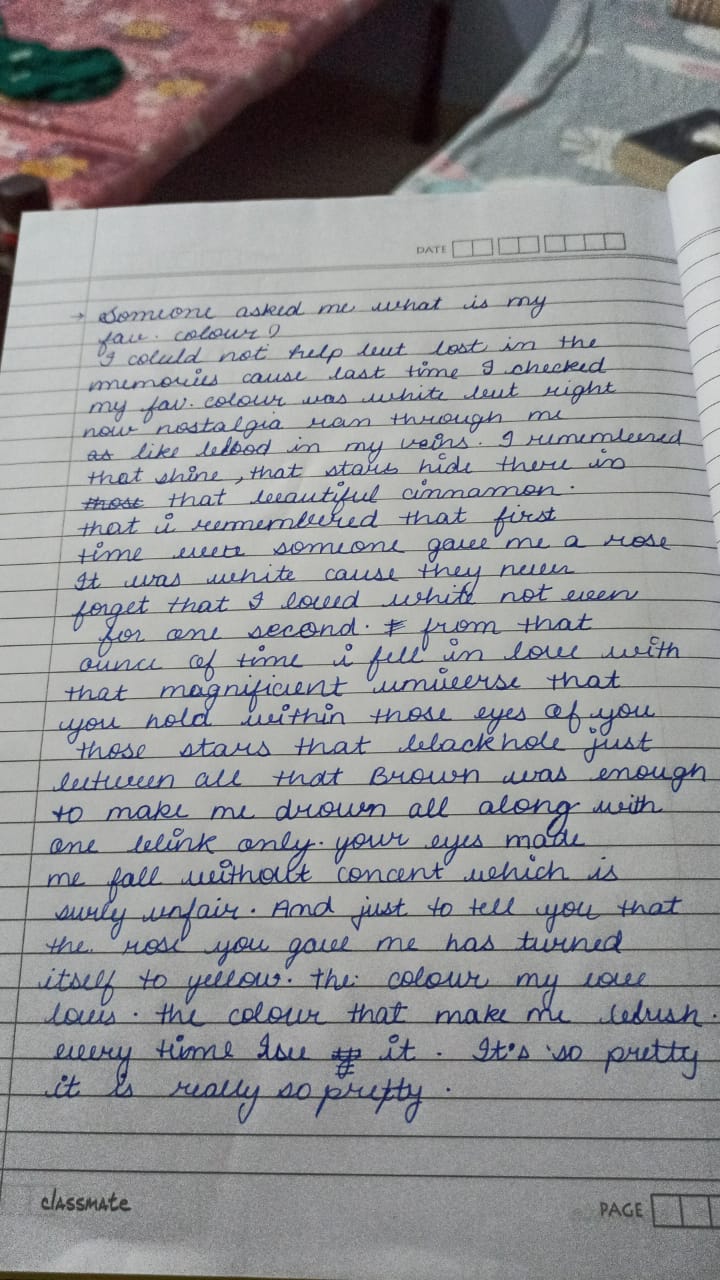 DATE
→ Someone asked me what is my
fav. colour?
I could not help but lost in the
memories cause last time I checked
my fav. colour was white but right
now nostalgia ran through me
as like blood in my veins. I remembered
that shine, that stars hide there in
those that beautiful cinnamon.
that i remembered that first
time were someone gave me a rose
It was white cause they never
forget that I loved white not even
for one second. from that
ounce of time i fell in love with
that magnificient universe that
you hold within those eyes of you
those stars that blackhole just
between all that Brown was enough
to make me drown all along with
one blink only. your eyes made
me fall without concent which is
surly unfair. And just to tell you that
the rose you gave me has turned
itself to yellow. the colour my love
loves. the colour that make me blush.
every time I see it. It's so pretty
it is really so pretty.
classmate
PAGE